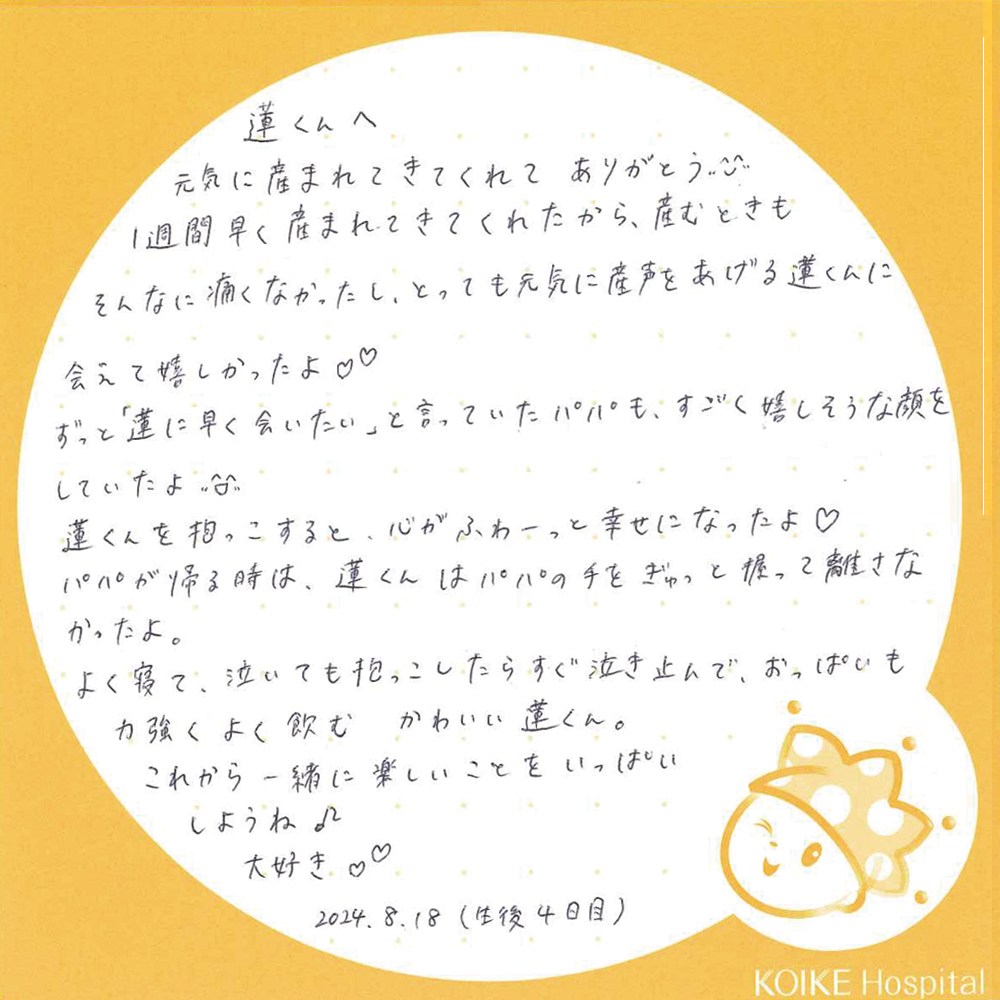 蓮くんへ
元気に産まれてきてくれて ありがとう
1週間早く産まれてきてくれたから、産むときも
そんなに痛くなかったし、とっても元気に産声をあげる蓮くんに
会えて嬉しかったよ♡♡
ずっと「蓮に早く会いたい」と言っていたパパも、すごく嬉しそうな顔を
していたよ
蓮くんを抱っこすると、心がふわーっと幸せになったよ♡
パパが帰る時は、蓮くんはパパの手をぎゅっと握って離さな
かったよ。
よく寝て、泣いても抱っこしたらすぐ泣き止んで、おっぱいも
力強くよく飲む かわいい蓮くん。
これから一緒に楽しいことをいっぱい
しようね♫
大好き♡♡
2024.8.18(生後4日目)
KOIKE Hospital